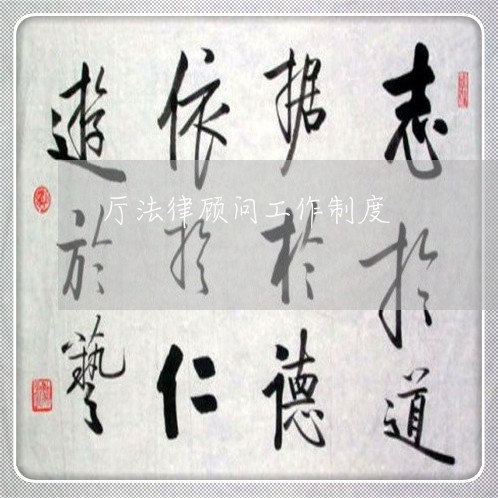 志於道
据於德
依於仁
遊於藝
厅法律顾问工作制度